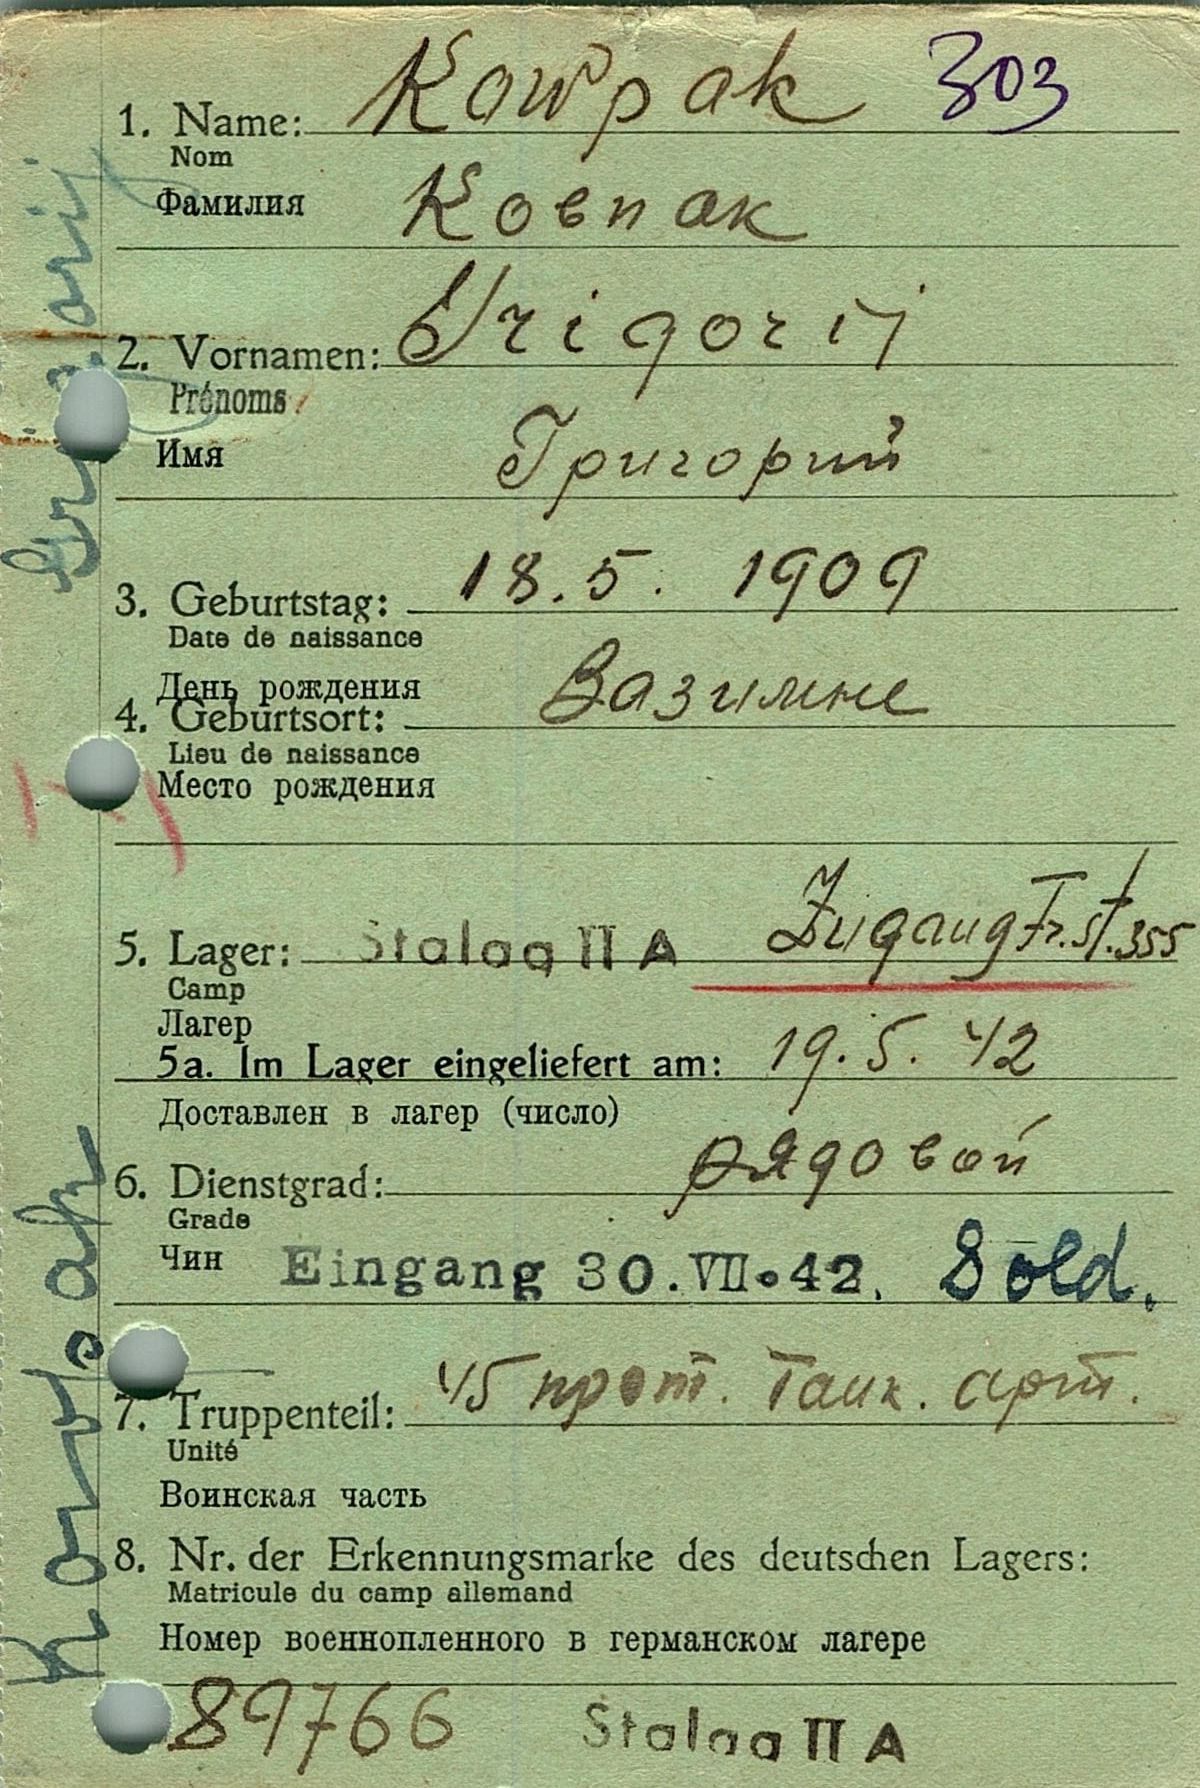 1. Name: Kowpak 303
Nom
Фамилия Ковпак
2. Vornamen: Grigorij
Prénoms
Имя Григорий
3. Geburtstag: 18.5. 1909
Date de naissance
День рождения
4. Geburtsort: Вазимне
Lieu de naissance
Место рождения
5. Lager: Stalag II A Zugang Fr.St.355
Camp
Лагер
5a. Im Lager eingeliefert am: 19.5.42
Доставлен в лагер (число)
6. Dienstgrad: рядовой
Grade
Чин Eingang 30.VII.42. Sold.
7. Truppenteil: 45 прот. танк. арт.
Unité
Воинская часть
8. Nr. der Erkennungsmarke des deutschen Lagers:
Matricule du camp allemand
Номер военнопленного в германском лагере
89766 Stalag II A
Kowpak Grigorij